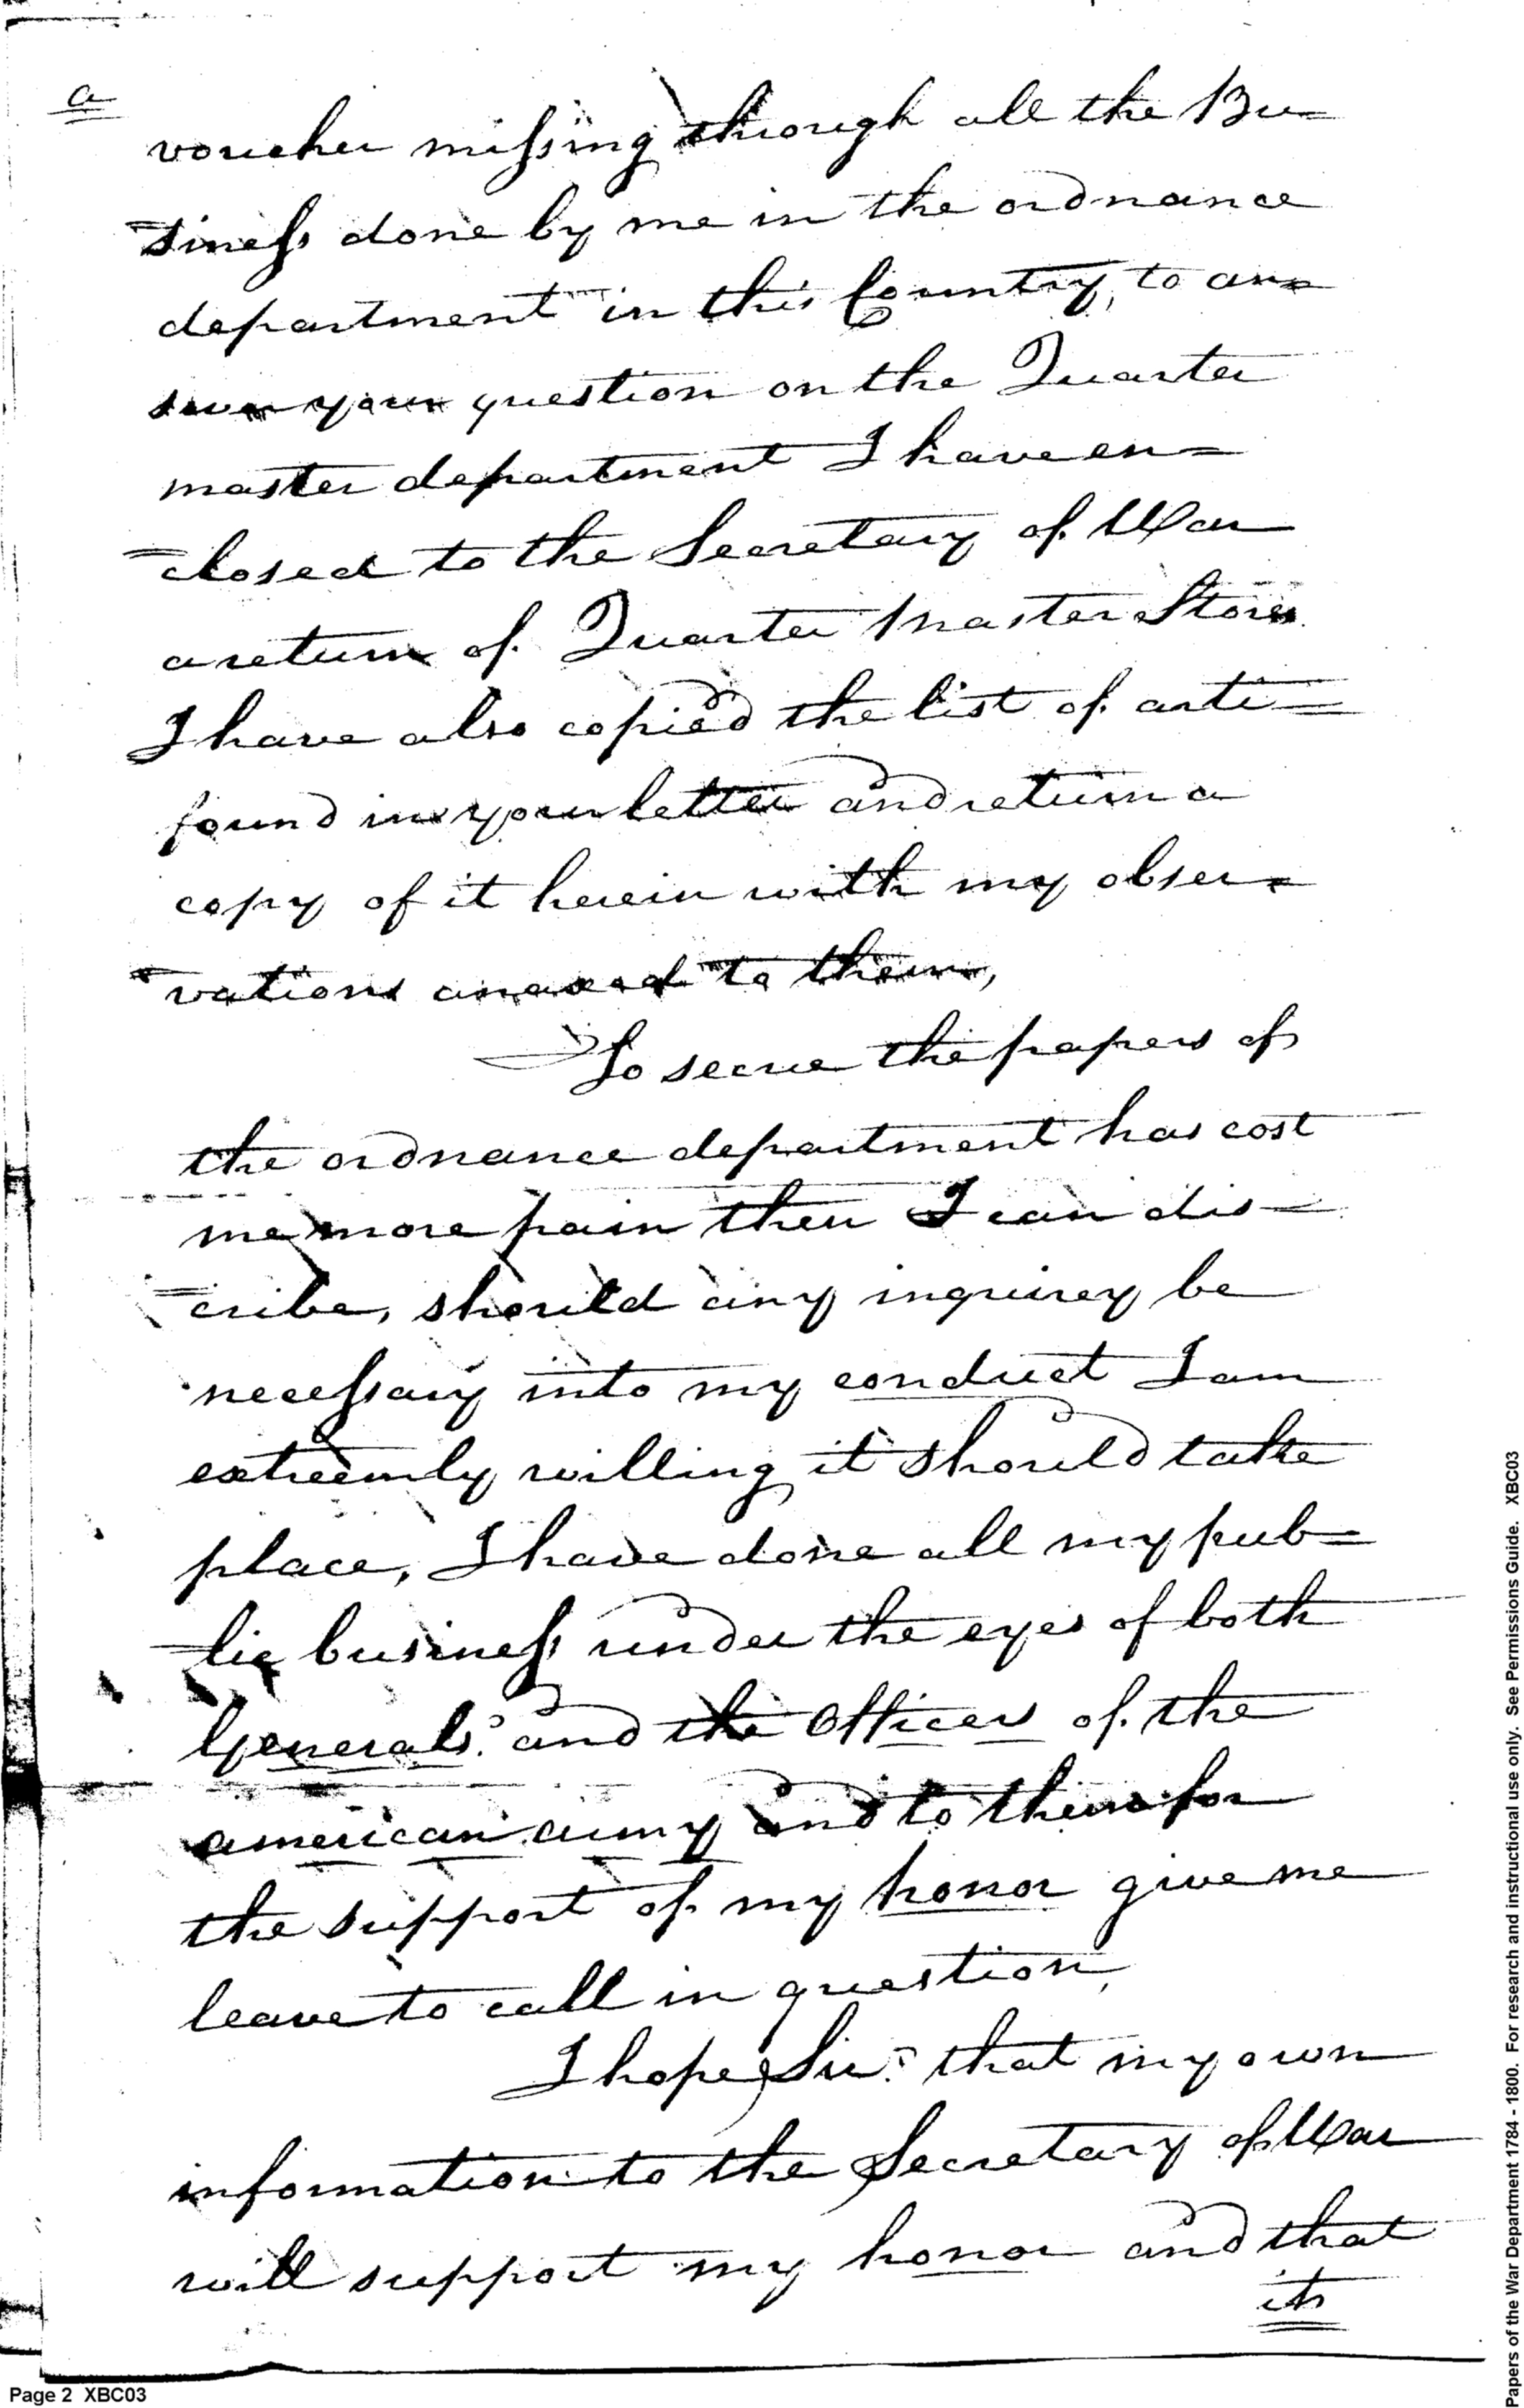 a
voucher missing through all the Bu=
=siness done by me in the ordnance
department in this Country, to an=
swer your question on the Quarter
master department I have en=
=closed to the Secretary of War
a return of Quarter Master Stores
I have also copied the list of arti=
found in your letter and return a
copy of it herein with my obser=
=vations anaxed to them,
To secure the papers of
the ordnance department has cost
me more pain then I can dis=
=cribe, should any inquirey be
necessary into my conduct I am
extreemly willing it should take
place, I have done all my pub=
lic business under the eyes of both
Generals. and the Officers of the
american army and to them for
the support of my honor give me
leave to call in question,
I hope Sir. that my own
information to the Secretary of War
will support my honor and that
its
Page 2 XBC03
Papers of the War Department 1784 - 1800. For research and instructional use only. See Permissions Guide. XBC03